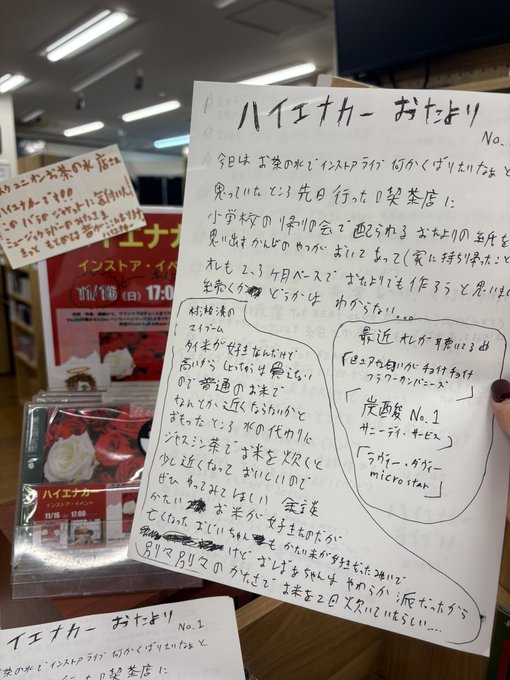 ハイエナカー おたより
No.
今日は お茶の水でインストアライブ 何かくばりたいなぁと
思っていたところ 先日行った喫茶店に
小学校の帰りの会で配られる おたよりの紙を
思い出すかんじのやつが おいてあって(家に持ち帰ったこと
オレも 2、3ヶ月ペースで おたよりでも作ろうと思いま
続くか どうかは わからない...
マイブーム
タイ米が好きなんだけど
高いから しょっちゅうは買えない
ので普通のお米で
なんとか近くならないかと
おもったところ 水の代わりに
ジャスミン茶でお米を炊くと
少し近くなって おいしいので
ぜひ やってみてほしい 余談
かたい お米が好きなのだが
亡くなった おじいちゃんも かたい米が好きだったみたいで
けど おばあちゃんは やわらか派だったから
別々 別々の かたさで お米を2回炊いていたらしい....
最近 オレが聴いてる曲
「ピュアな匂いがチョイナチョイナ
フラワーカンパニーズ」
「炭酸 No.1
サニーデイ・サービス」
「ラヴィー・ダヴィー
microstar」
お茶の水店さん
ハイエナカーです!!!
ハイエナカー
インストア・イベ
11/16 (日) 17:00
ハイエナカー
インストア・イベント
11/16 (日) 17:00
イエナカー おたより
No.1
お茶の水でインストアライブ 何かくばりたいなぁと
ところ 先日行った喫茶店に